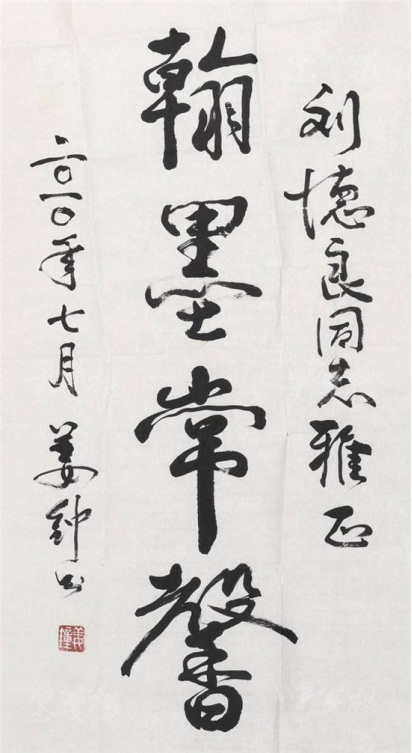 刘德良同志雅正
翰墨常馨
二〇一〇年七月姜钟书